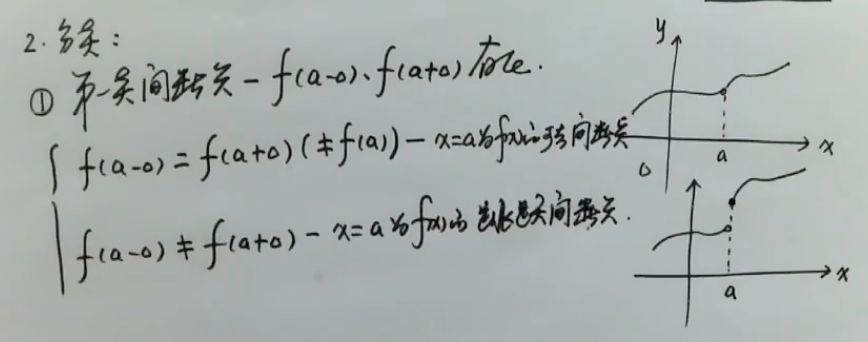 2. 分类：
① 第一类间断点 - f(a-0)、f(a+0) 存在.
f(a-0) = f(a+0) (≠f(a)) - x=a为f(x)的可去间断点
f(a-0) ≠ f(a+0) - x=a为f(x)的跳跃间断点.
y
x
0
a
x
a